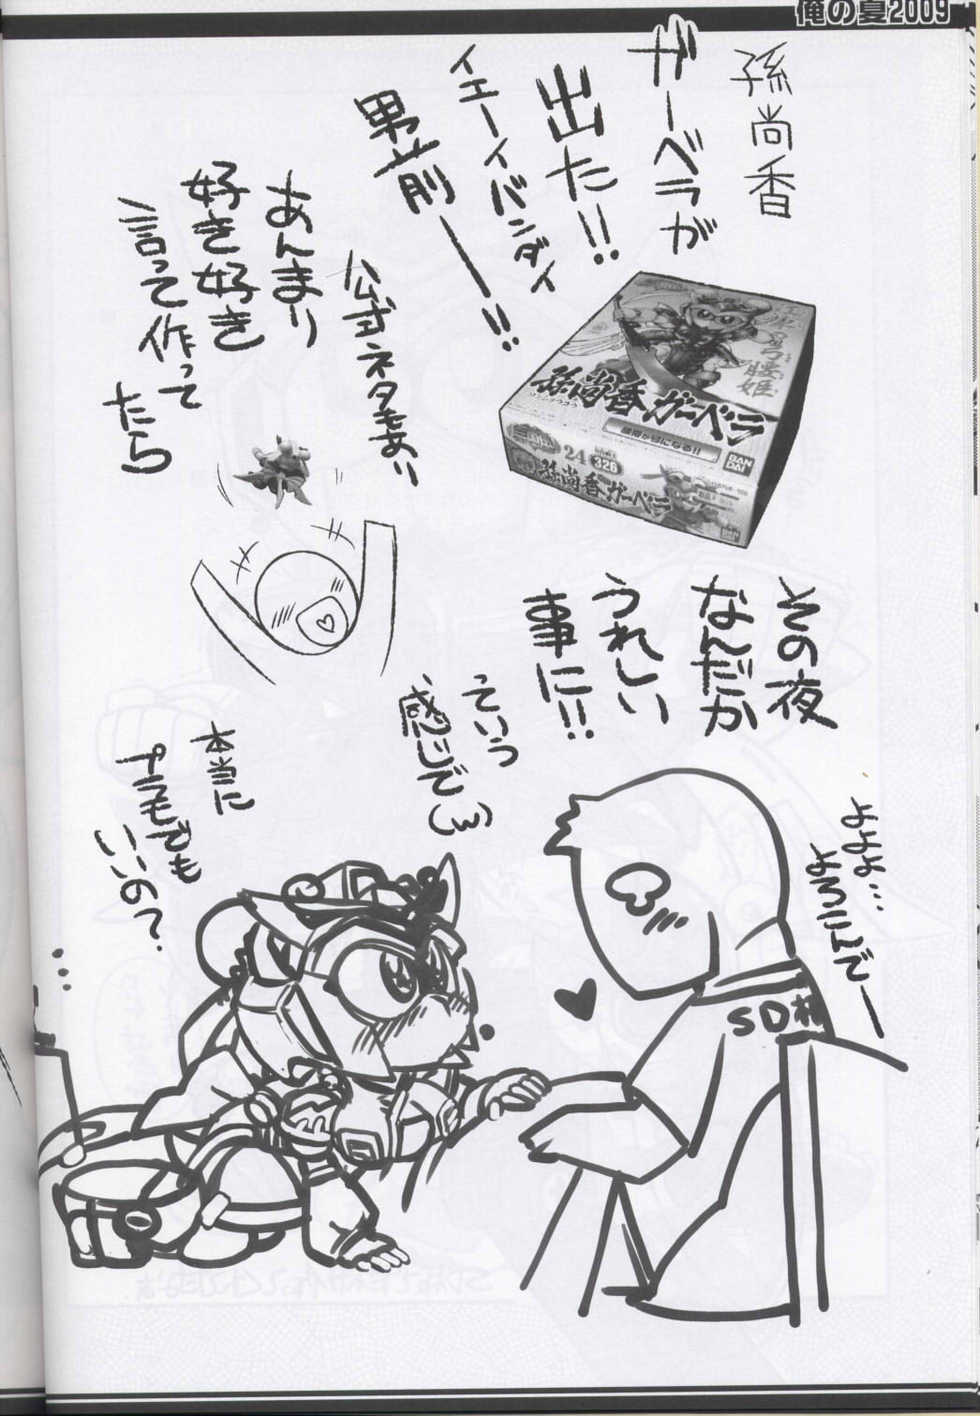 俺の夏2009
孫尚香
ガーベラが
出た!!
イエーイバンダイ
男前ー!!
公式ネタもあり
あんまり
好き好き
言って作って
たら
孫尚香ガーベラ
弓腰姫
BANDAI
24
326
孫尚香ガーベラ
その夜
なんだか
うれしい
事に!!
という
感じで(笑)
よよよ…
よろこんでー
本当に
プラモでも
いいの?
SD村